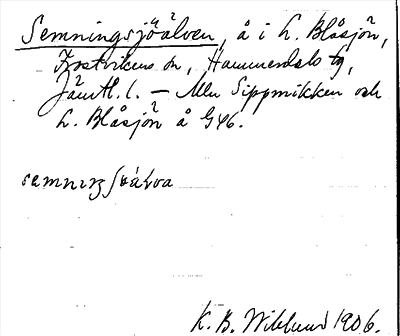 Semningsjöälven, å i L. Blåsjön,
Frostvikens sn, Hammerdals tg,
Jämtl. l. – Mln Sippmikken och
L. Blåsjön å G46.
K. B. Wiklund 1906.